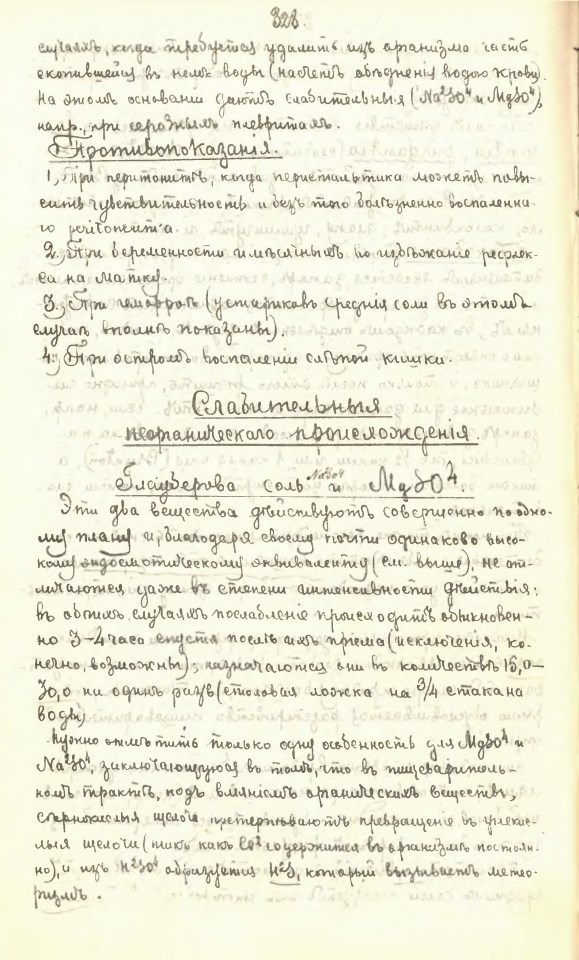 328.
случаяхъ, когда требуется удалить изъ организма часть
скопившейся въ немъ воды (насчетъ объдненія водою крови).
На этомъ основаніи даютъ слабительныя (Na²SO⁴ и MgSO⁴),
напр., при серозныхъ плевритахъ.
Противопоказанія.
1, При перитонитѣ, когда перистальтика можетъ повы-
сить чувствительность и безъ того болѣзненно воспаленна-
го peritoneum'а.
2, При беременности и мѣсячныхъ во избѣжаніе рефлек-
са на матку.
3, При гемморроѣ (у стариковъ среднія соли въ этомъ
случаѣ вполнѣ показаны).
4, При остромъ воспаленіи слѣпой кишки.
Слабительныя
неорганическаго происхожденія.
Глауберова соль Na²SO⁴ и MgSO⁴.
Эти два вещества дѣйствуютъ совершенно по одно-
му плану и, благодаря своему почти одинаково высо-
кому эндосмотическому эквиваленту (см. выше), не от-
личаются даже въ степени интенсивности дѣйствія:
въ обоихъ случаяхъ послабленіе происходитъ обыкновен-
но 3-4 часа спустя послѣ ихъ пріема (исключенія, ко-
нечно, возможны); назначаются они въ количествѣ 15,0—
30,0 на одинъ разъ (столовая ложка на 3/4 стакана
воды)
Нужно отмѣтить только одну особенность для MgSO⁴ и
Na²SO⁴, заключающуюся въ томъ, что въ пищеваритель-
номъ трактѣ, подъ вліяніемъ органическихъ веществъ,
сѣрнокислыя щелочи претерпѣваютъ превращеніе въ углекис-
лыя щелочи (такъ какъ CO² содержится въ организмѣ постоян-
но), и изъ H²SO⁴ образуется H²S, который вызываетъ метео-
ризмъ.